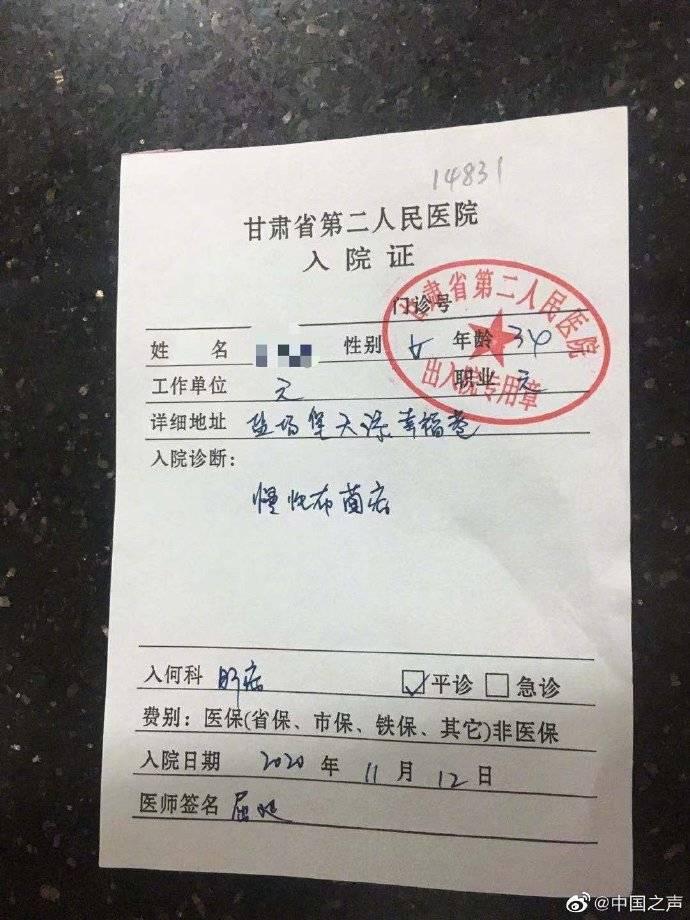 14831
甘肃省第二人民医院
入院证
门诊号
甘肃省第二人民医院
出入院专用章
姓名 性别 女 年龄 34
工作单位 无 职业 无
详细地址 盐场堡天源幸福苑
入院诊断:
慢性布菌病
入何科 肝病 ☑平诊 □急诊
费别: 医保(省保、市保、铁保、其它)非医保
入院日期 2020 年 11 月 12 日
医师签名
@中国之声